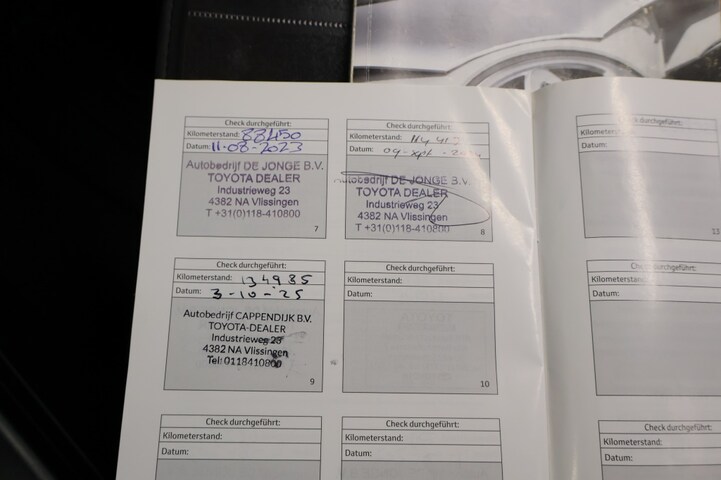 Check durchgeführt:
Kilometerstand: 88450
Datum: 11-08-2023
Autobedrijf DE JONGE B.V.
TOYOTA DEALER
Industrieweg 23
4382 NA Vlissingen
T +31(0)118-410800
7
Check durchgeführt:
Kilometerstand:
Datum: 09-
Autobedrijf DE JONGE B.V.
TOYOTA DEALER
Industrieweg 23
4382 NA Vlissingen
T +31(0)118-410800
8
Check durchgeführt:
Kilometerstand: 134985
Datum: 3-10-'25
Autobedrijf CAPPENDIJK B.V.
TOYOTA-DEALER
Industrieweg 23
4382 NA Vlissingen
Tel: 0118410800
9
Check durchgeführt:
Kilometerstand:
Datum:
10
Check durchgeführt:
Kilometerstand:
Datum:
Check durchgeführt:
Kilometerstand:
Datum:
Check durchgeführt:
Kilometerstand:
Datum:
13
Check durchgeführt:
Kilometerstand:
Datum:
Check durchgeführt:
Kilometerstand:
Datum: